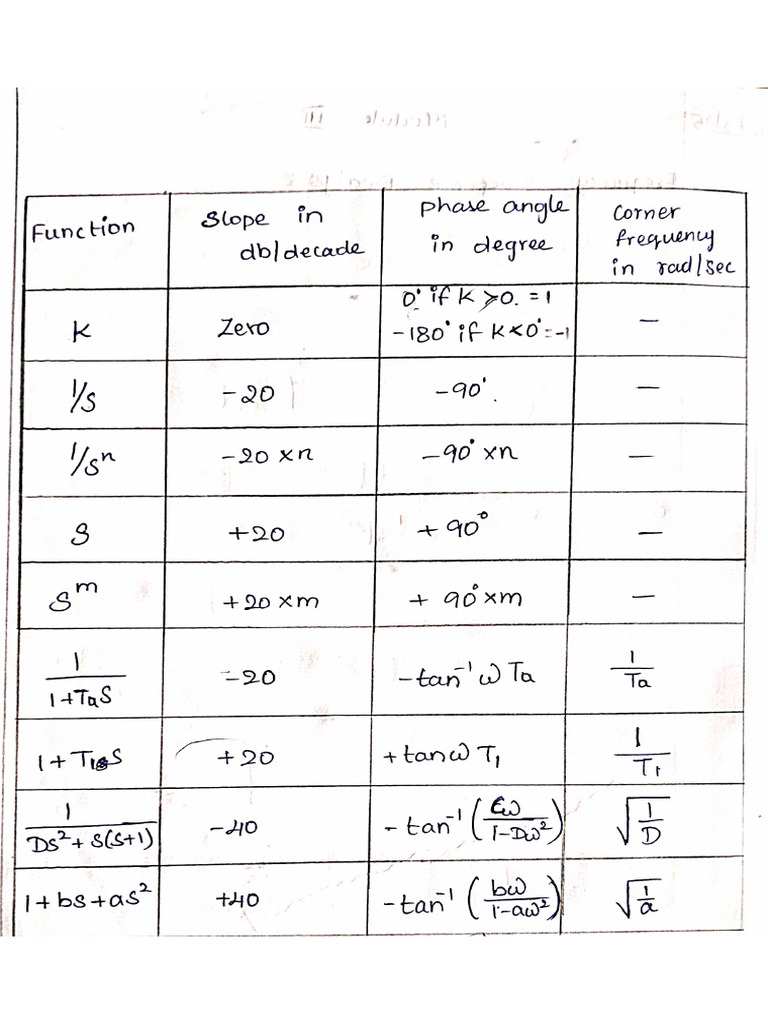 Module III
Function | Slope in db/decade | phase angle in degree | Corner frequency in rad/sec
K | Zero | 0° if K >0. = 1 | —
-180° if K<0° = -1
1/S | -20 | -90°. | —
1/Sⁿ | -20 xn | -90° xn | —
S | +20 | + 90° | —
Sᵐ | +20 xm | + 90° xm | —
1/(1+TaS) | -20 | -tan⁻¹ ω Ta | 1/Ta
1+T₁S | +20 | +tanω T₁ | 1/T₁
1/(DS²+S(S+1)) | -40 | -tan⁻¹ (Cω/(1-Dω²)) | √(1/D)
1+bs+as² | +40 | -tan⁻¹ (bω/(1-aω²)) | √(1/a)